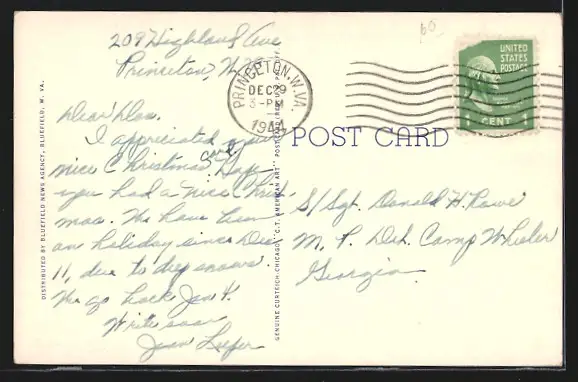 209 Highland Ave
Princeton, W. Va.
Dear Don.
I appriciated your
nice Christmas card. Hope
you had a nice Christ-
mas. We have been
on holiday since Dec
11, due to deep snows.
We go back Jan 4.
Write soon
Jean
60
PRINCETON, W.VA.
DEC 29
3-PM
1944
UNITED
STATES
POSTAGE
1 CENT 1
POST CARD
S/Sgt. Donald H. Rowe
M. P. Det. Camp Wheeler
Georgia
DISTRIBUTED BY BLUEFIELD NEWS AGENCY, BLUEFIELD, W. VA.
GENUINE CURTEICH-CHICAGO "C.T. AMERICAN ART" POST CARD (REG. U.S. PAT. OFF.)